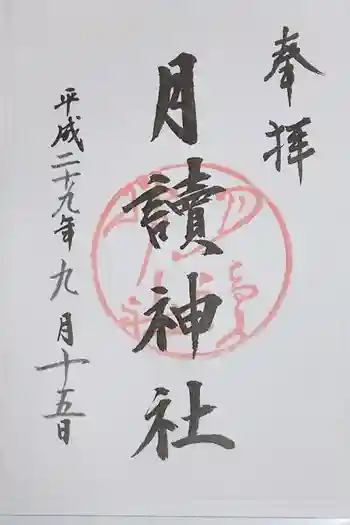 奉拝
月讀神社
平成二十九年九月十五日